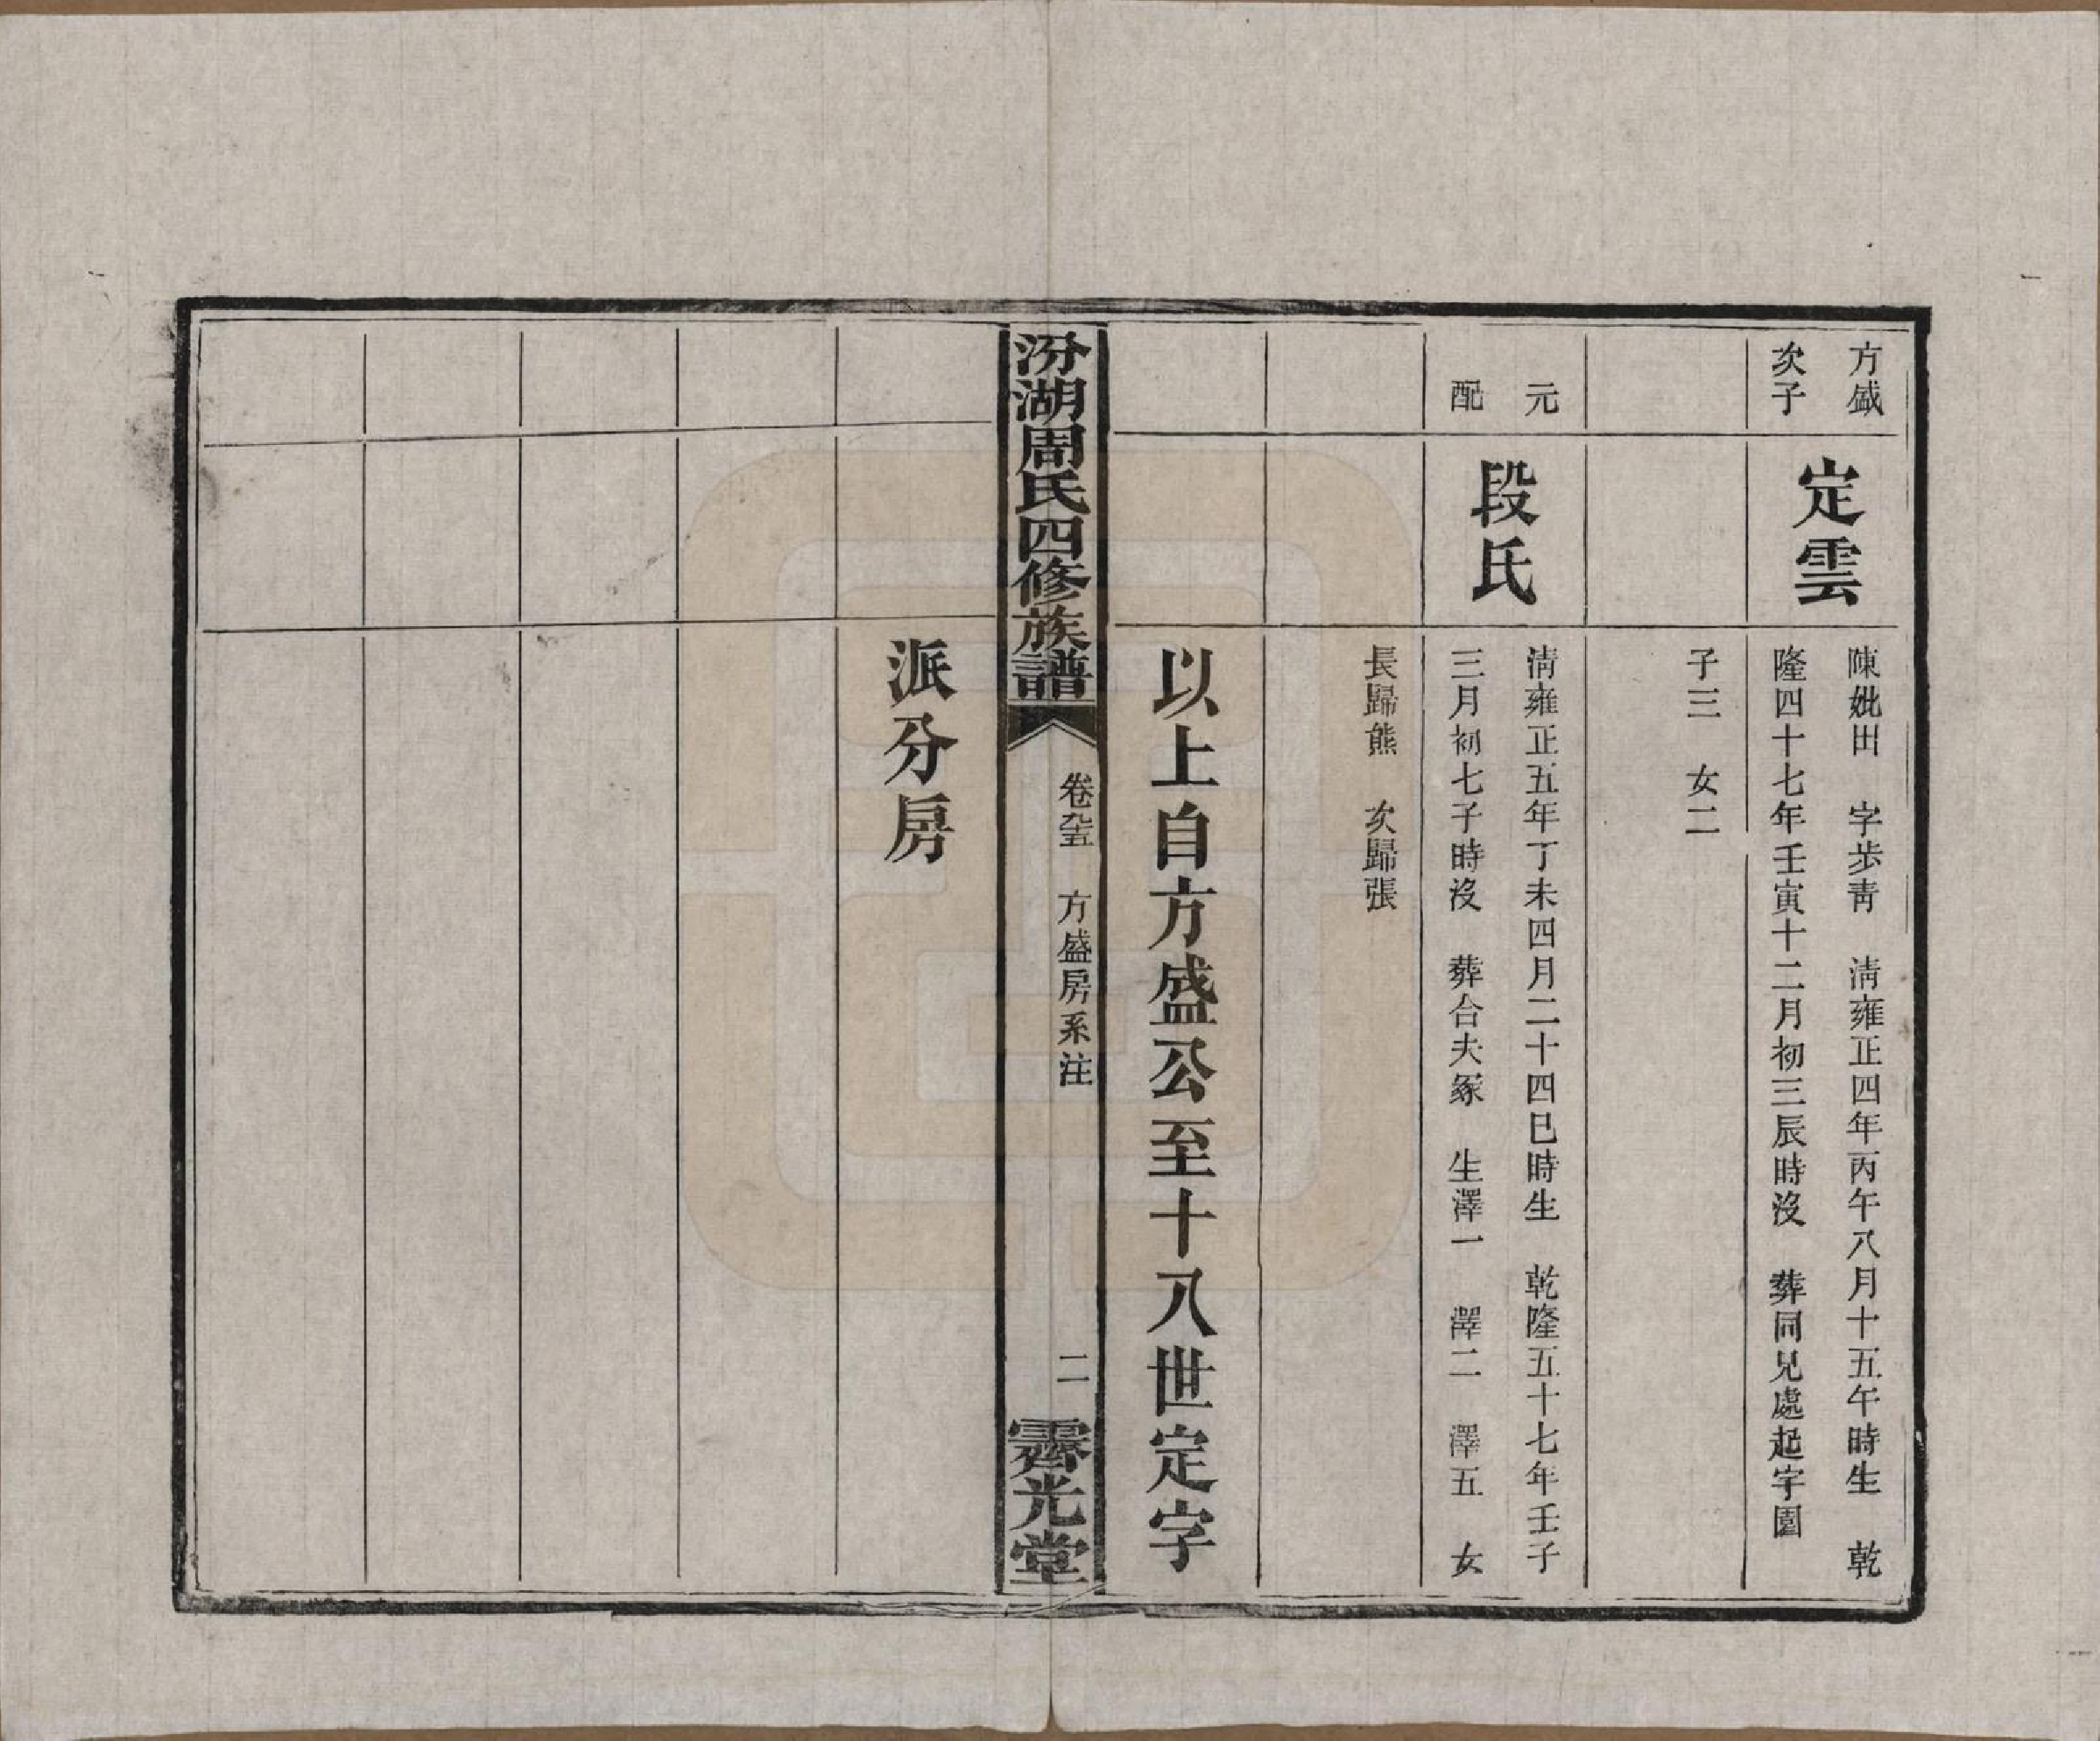 方盛
次子
定雲
陳妣出　字步青　清雍正四年丙午八月十五午時生　乾
隆四十七年壬寅十二月初三辰時沒　葬同兄處起字園
子三　女二
元
配
段氏
清雍正五年丁未四月二十四巳時生　乾隆五十七年壬子
三月初七子時沒　葬合夫冢　生澤一　澤二　澤五　女
長歸熊　次歸張
以上自方盛公至十八世定字
汾湖周氏四修族譜
卷五　方盛房系注
二
霽光堂
派分房